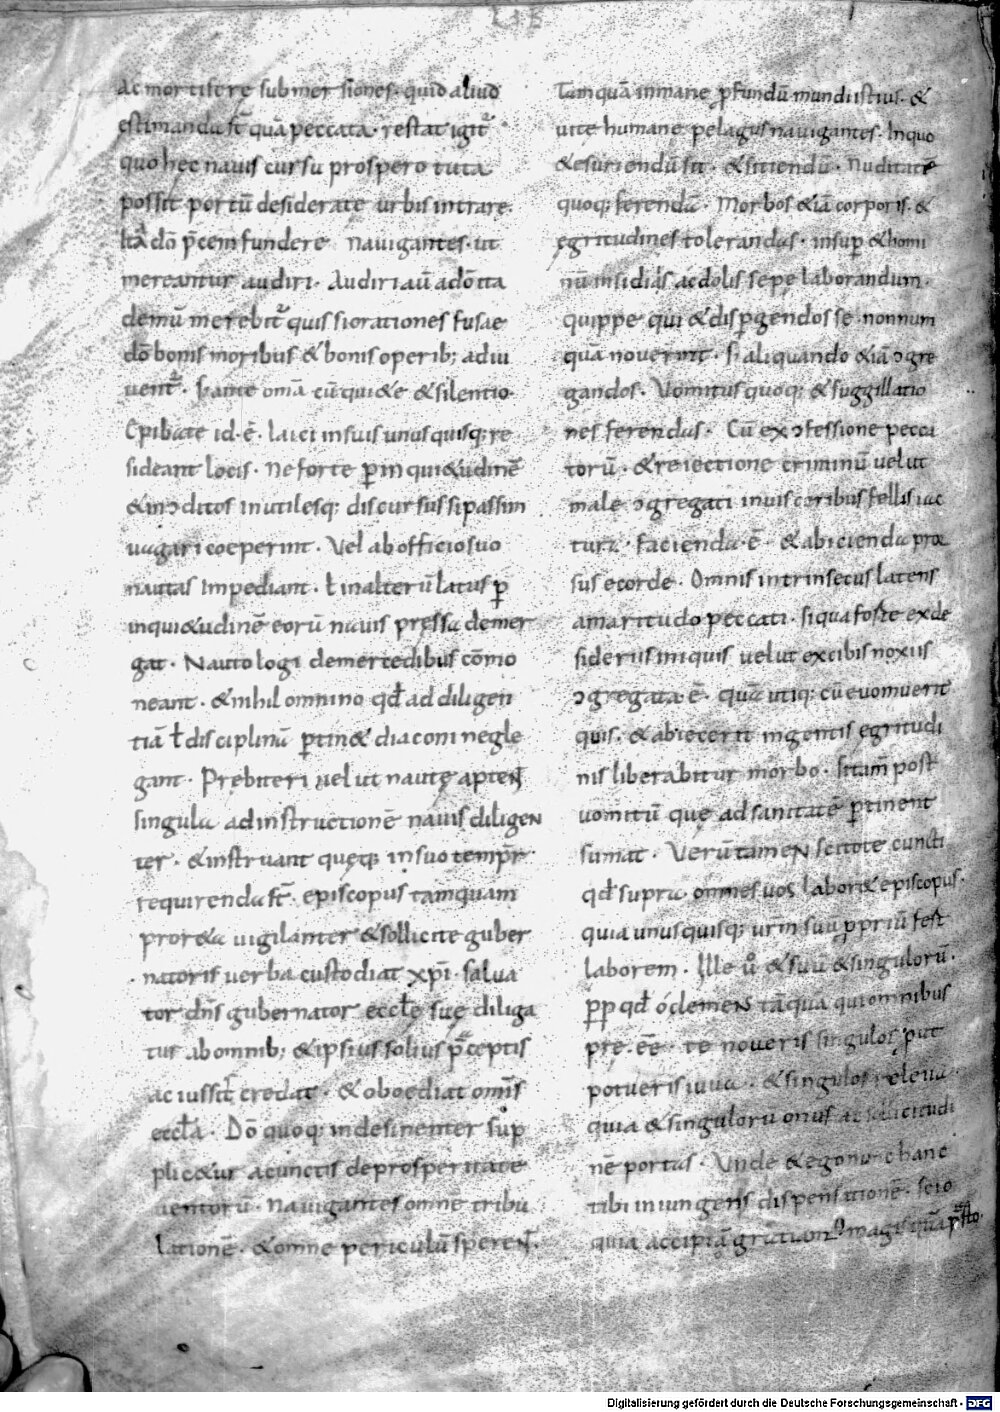 ac mortifere submersiones · quid aliud
estimanda st̄ quā peccata · restat igit̄
quo hec nauis cursu prospero tuta
possit portū desiderate urbis intrare.
ita dō p̄cem fundere nauigantes · ut
mereantur audiri · Audiri aū adō ita
demū merebit̄ quis si orationes fusae
dō bonis moribus & bonis operib; adiu
uent̄ · S; ante omā cū qui&e & silentio·
Epibate id · ē · laici in suis unusquisq; re
sideant locis · Ne forte p̄ inqui&udinē
& inɔditos inutilesq; discursus si passim
uagari coeperint · Vel ab officio suo
nautas impediant · ł in alterū latus p̄
inqui&udinē eorū nauis pressa demer
gat · Nautologi de mercedibus cōmo
neant · & nihil omnino qd̄ ad diligen
tiā ł disciplinā p̄tin& diaconi negle
gant · Prebiteri uelut nautę aptent
singula ad instructionē nauis diligen
ter · & instruant quęq; in suo temp̄r̄
requirenda st̄ · episcopus tamquam
pror&a uigilanter & sollicite guber
natoris uerba custodiat xp̄i · salua
tor dn̄s gubernator eccłe suę diliga
tur ab omnib; & ipsius solius p̄ceptis
ac iussit̄ credat · & oboediat omīs
eccła · Dō quoq; indesinenter sup
plic&ur a cunctis de prosperitate
uentorū · Nauigantes omnē tribu
lationē · & omne periculū sperent·
Tamquā inmane p̄fundū mundi istius · &
uite humane pelagus nauigantes · In quo
& esuriendū sit · & sitiendū · Nuditate
quoq; ferendā · Morbos &iā corporis · &
egritudines tolerandas · insup̄ & homi
nū insidiis ac dolis sepe laborandum·
quippe qui & disp̄gendos se · nonnum
quā nouerint · S; aliquando &iā ɔgre
gandos · Vomitus quoq; & suggillatio
nes ferendas · Cū ex ɔfessione pecca
torū · & reiectione criminū uelut
male ɔgregati in uisceribus fellis iac
tura · facienda · ē · & abicienda pror
sus e corde · Omnis intrinsecus latens
amaritudo peccati · si qua forte ex de
sideriis iniquis uelut ex cibis noxiis
ɔgregata · ē · quā utiq; cū euomuerit
quis · & abiecerit ingentis egritudi
nis liberabitur morbo · si tam post
uomitū que ad sanitatē p̄tinent
sumat · Verū tamen scitote cuncti
qd̄ supra omnes uos labor& episcopus·
quia unusquisq; ur̄m suū p̄priū fert
laborem · Ille u̇ & suū & singulorū·
p̄p̄ qd̄ ó clemens tāqua qui omnibus
pre · eē · te noueris singulos put
potueris iuua · & singulos releua·
quia & singulorū onus ac sollicitudi
nē portas · Vnde & ego nunc hanc
tibi iniungens dispensationē · scio
quia accipiā gratiam magis quā p̄sto·
Digitalisierung gefördert durch die Deutsche Forschungsgemeinschaft - DFG